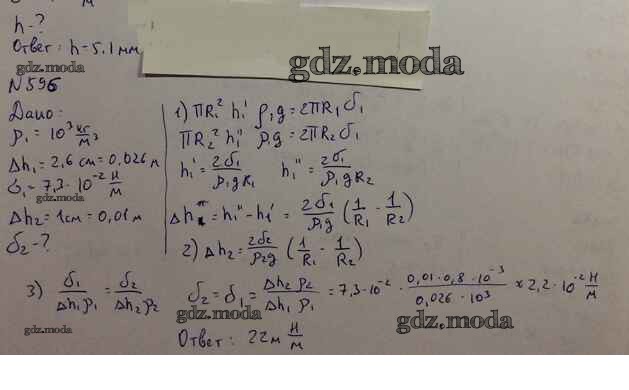 h-?
Ответ: h=5.1 мм
gdz.moda
gdz.moda
N 596
Дано:
ρ₁ = 10³ кг/м³
Δh₁ = 2,6 см = 0,026 м
σ₁ = 7,3 · 10⁻² Н/м
gdz.moda
Δh₂ = 1см = 0,01 м
σ₂ - ?
1) πR₁² h₁' ρ₁g = 2πR₁ σ₁
πR₂² h₁'' ρ₁g = 2πR₂ σ₁
h₁' = 2σ₁/ρ₁gR₁ h₁'' = 2σ₁/ρ₁gR₂
Δh = h₁'' - h₁' = 2σ₁/ρ₁g (1/R₁ - 1/R₂)
2) Δh₂ = 2σ₂/ρ₂g (1/R₁ - 1/R₂)
3) σ₁/Δh₁ρ₁ = σ₂/Δh₂ρ₂ σ₂ = σ₁ = Δh₂ ρ₂/Δh₁ ρ₁ = 7,3·10⁻² · 0,01·0,8·10⁻³/0,026·10³ × 2,2·10⁻² Н/м
gdz.moda
gdz.moda
gdz.moda
Ответ: 22м Н/м